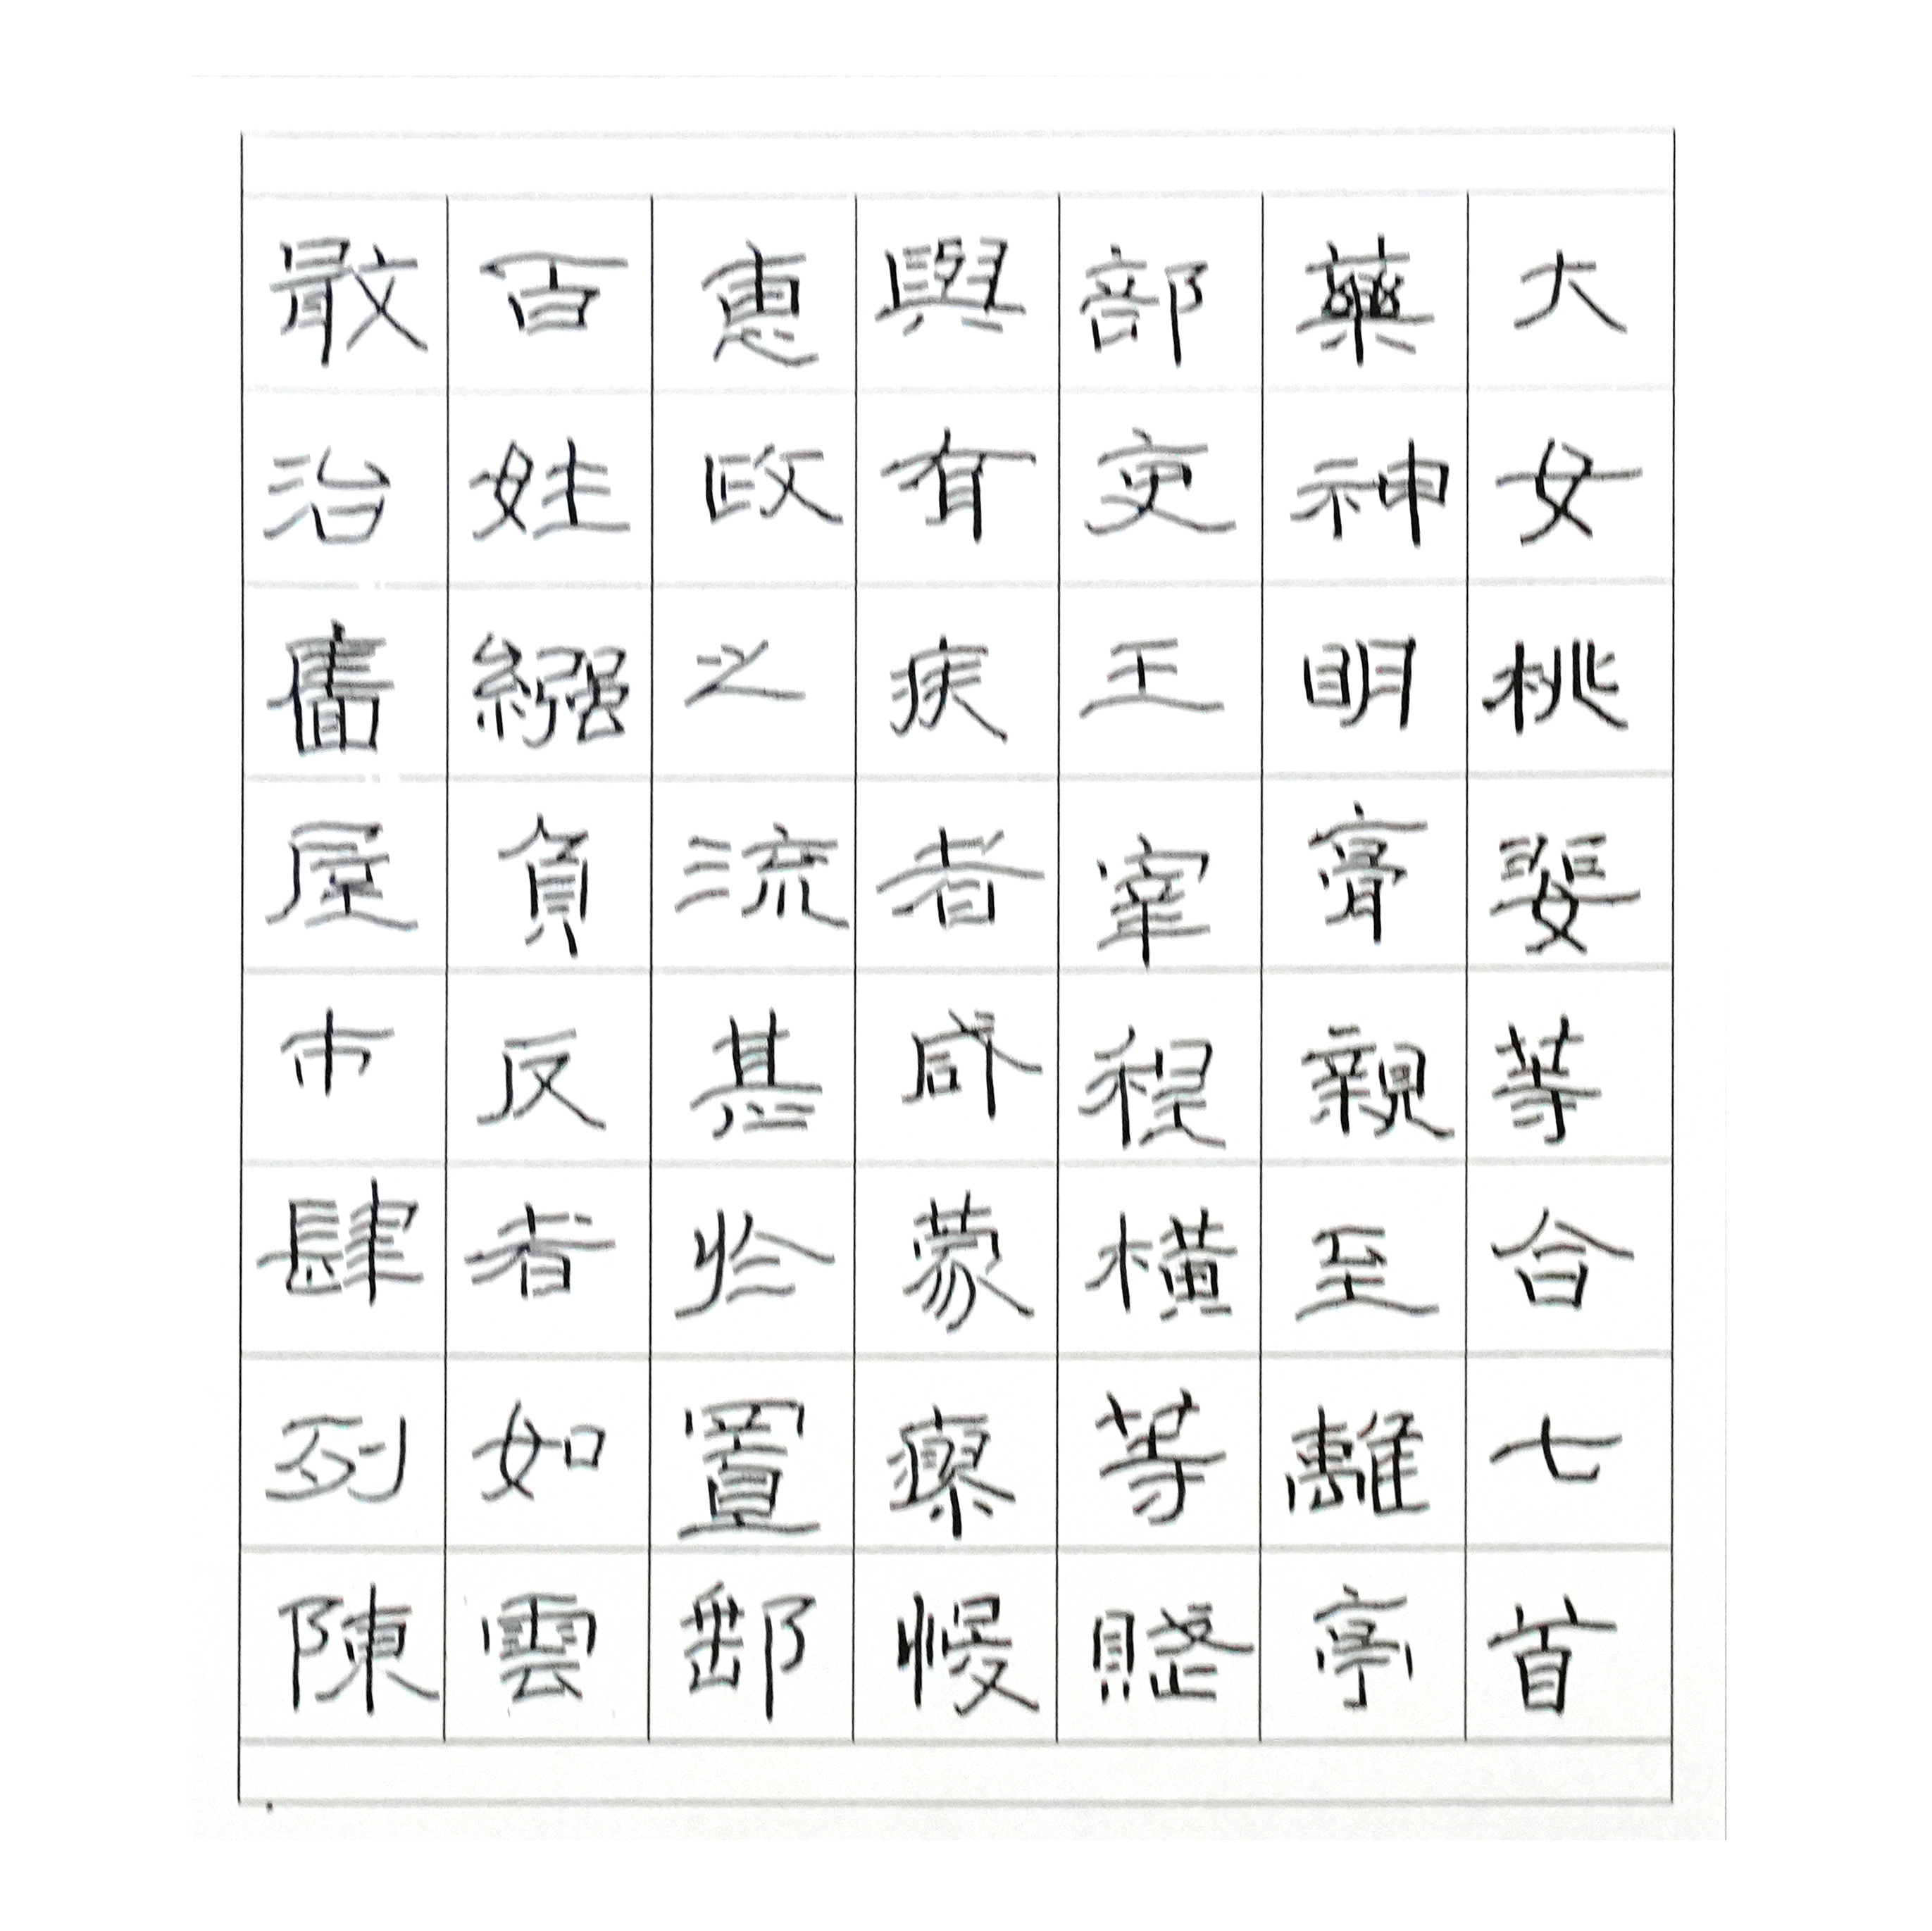 大女桃婓等合七首
藥神明膏親至離亭
部吏王宰程橫等賦
與有疾者咸蒙瘳悛
惠政之流甚於置郵
百姓繈負反者如雲
戢治廧屋市肆列陳